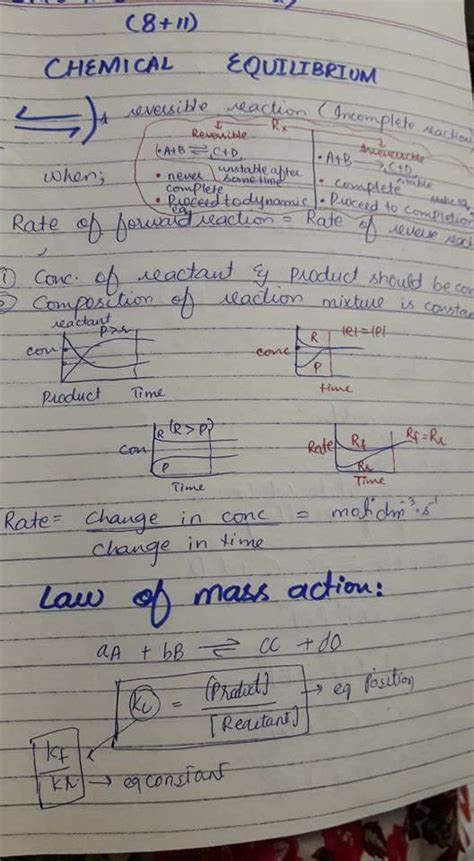 (8+11)
CHEMICAL EQUILIBRIUM
reversible reaction (Incomplete reaction
Rx
Reversible
Irreversible
• A+B ⇌ C+D
• A+B → C+D
when;
• never complete
unstable after some time
• complete
stable
• Proceed to dynamic eq
• Proceed to completion
Rate of forward reaction = Rate of reverse reac
① Conc. of reactant & Product should be con
② Composition of reaction mixture is constan
reactant
P>R
conc
Product Time
R
|R|=|P|
conc
P
time
R (R>P)
Conc
P
Time
Rate
Rf
Rf=Rr
Rr
Time
Rate = change in conc / change in time = mol dm⁻³ s⁻¹
Law of mass action:
aA + bB ⇌ cC + dD
Kc = [Product] / [Reactant] → eq position
Kf / Kr → eq constant